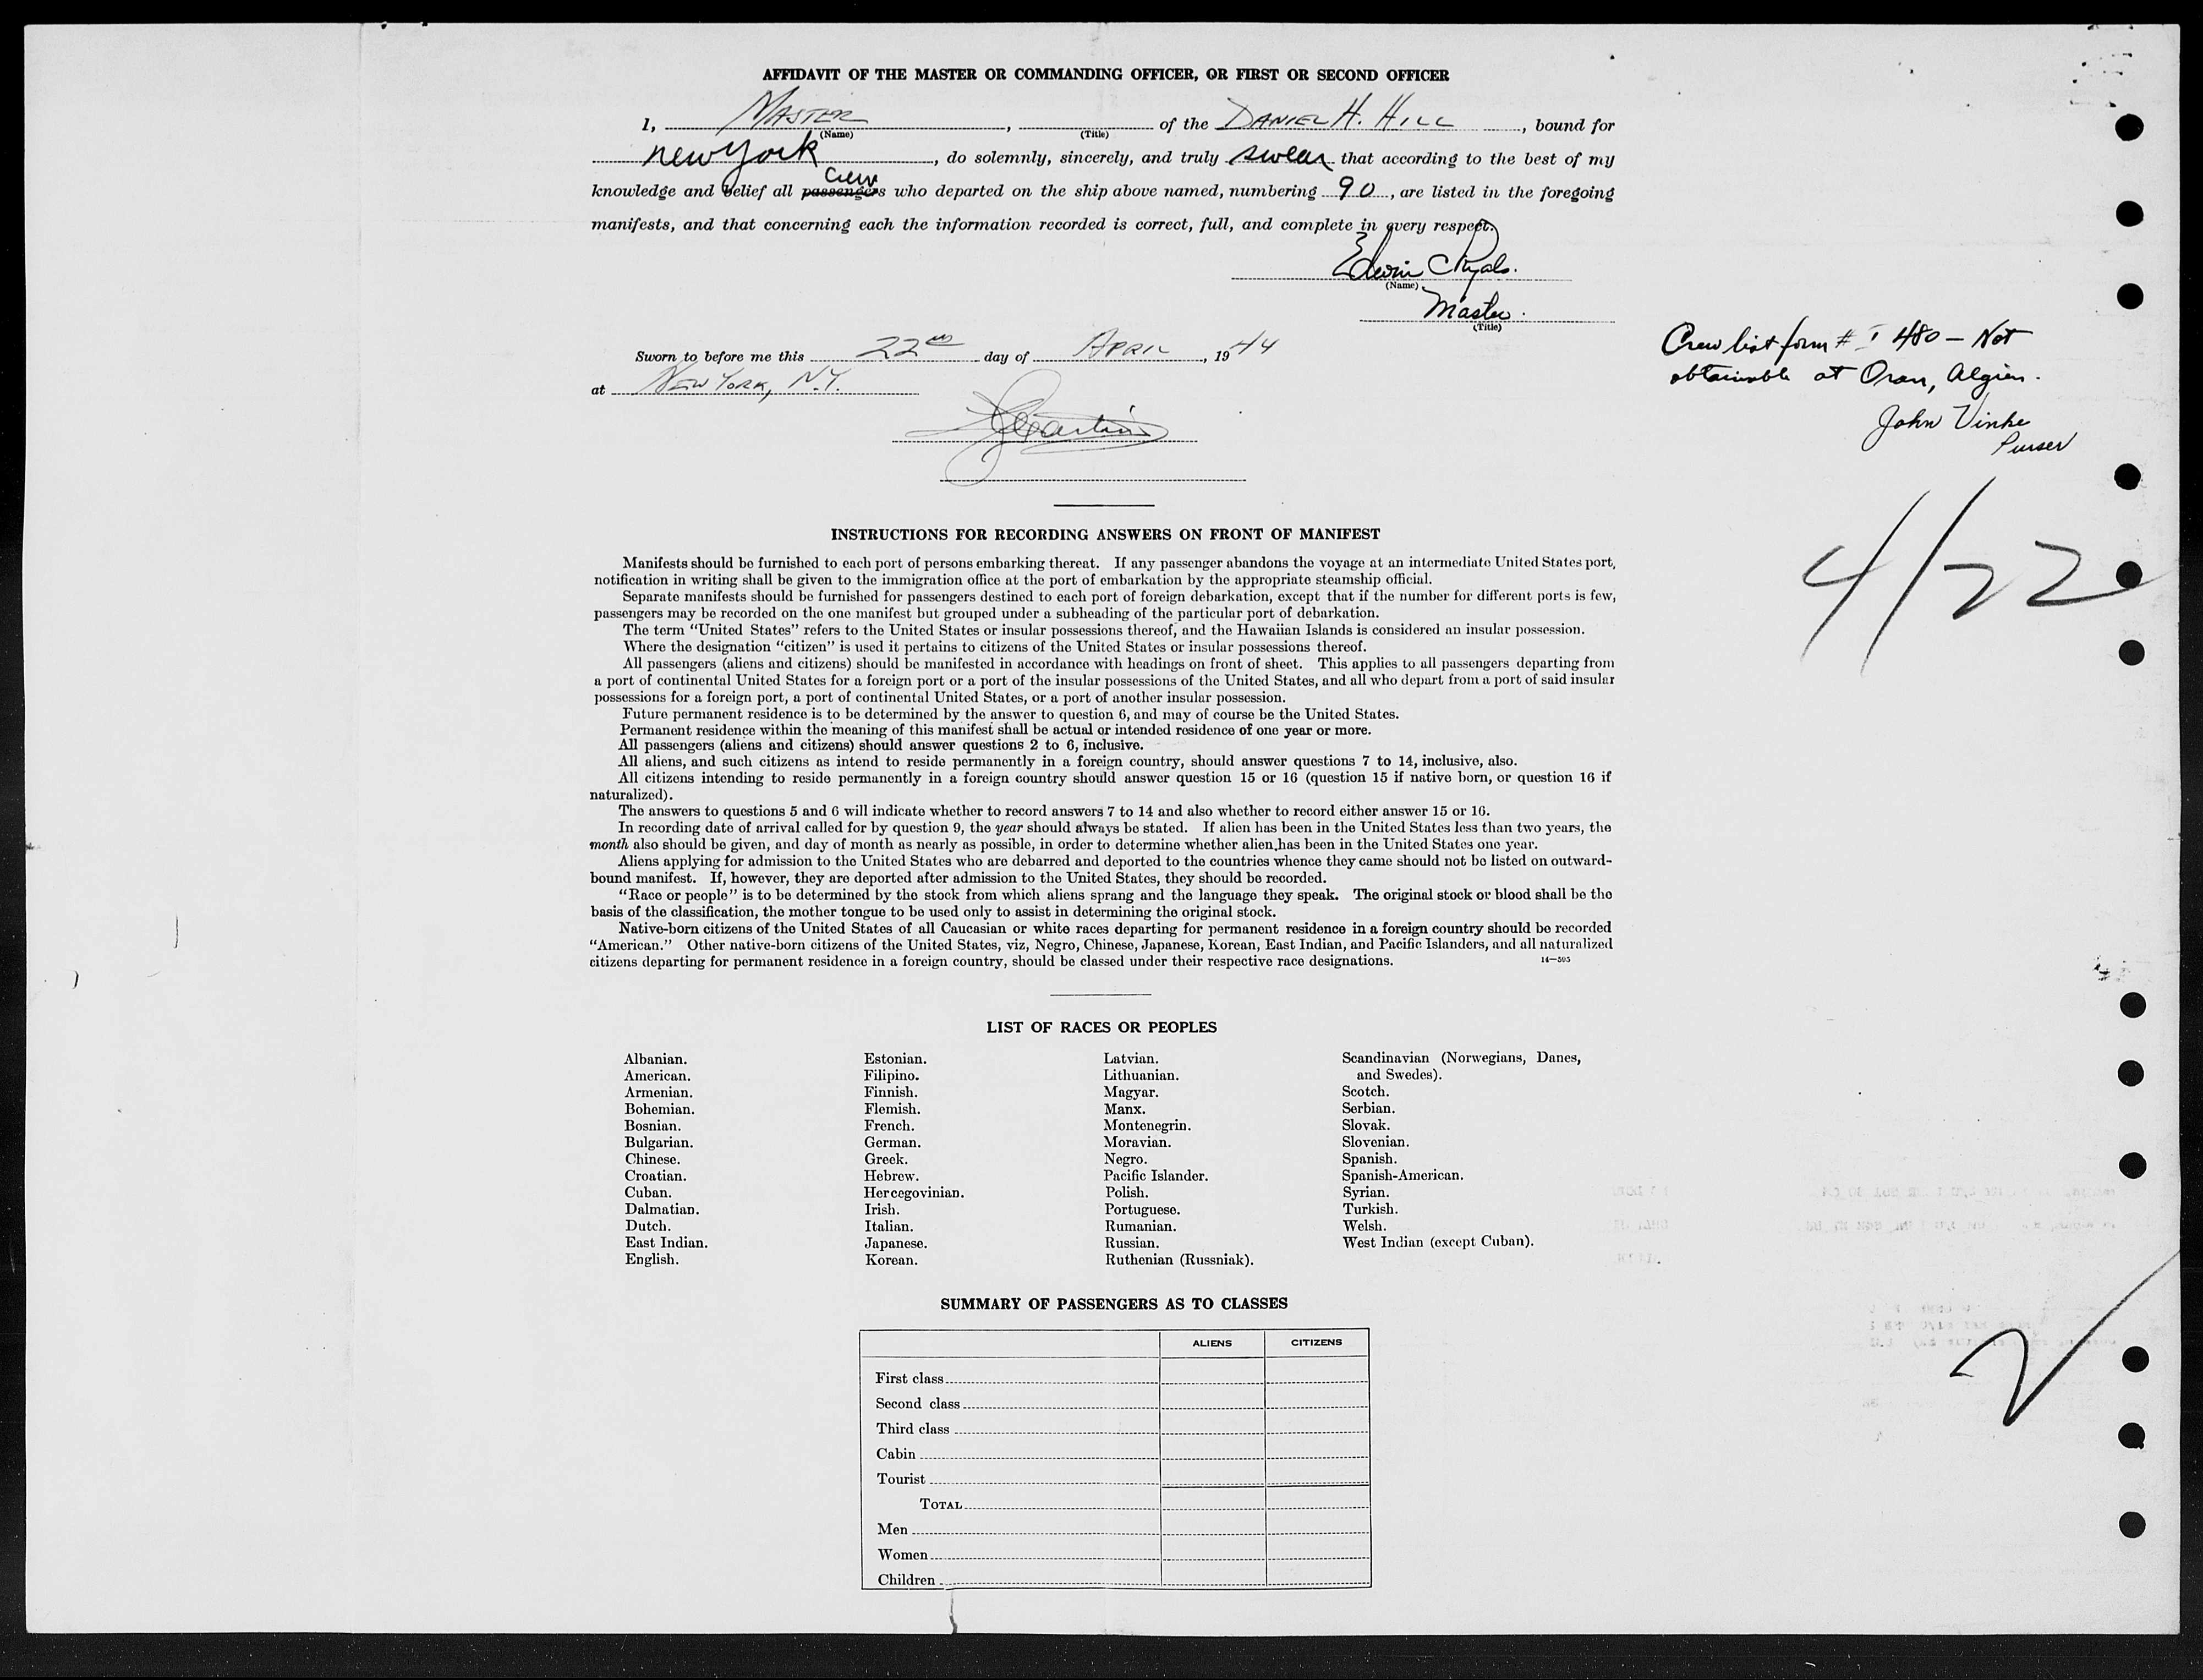 AFFIDAVIT OF THE MASTER OR COMMANDING OFFICER, OR FIRST OR SECOND OFFICER
I, MASTER, of the DANIEL H. HILL, bound for
(Name) (Title)
new york, do solemnly, sincerely, and truly swear that according to the best of my
crew
knowledge and belief all passengers who departed on the ship above named, numbering 90, are listed in the foregoing
manifests, and that concerning each the information recorded is correct, full, and complete in every respect.
Edwin C Ryals.
(Name)
Master.
(Title)
Sworn to before me this 22nd day of APRIL, 1944
at NEW YORK, N.Y.
Crew list form # I 480 - Not
obtainable at Oran, Algiers.
John Vinke
Purser
4/22
INSTRUCTIONS FOR RECORDING ANSWERS ON FRONT OF MANIFEST
Manifests should be furnished to each port of persons embarking thereat. If any passenger abandons the voyage at an intermediate United States port,
notification in writing shall be given to the immigration office at the port of embarkation by the appropriate steamship official.
Separate manifests should be furnished for passengers destined to each port of foreign debarkation, except that if the number for different ports is few,
passengers may be recorded on the one manifest but grouped under a subheading of the particular port of debarkation.
The term “United States” refers to the United States or insular possessions thereof, and the Hawaiian Islands is considered an insular possession.
Where the designation “citizen” is used it pertains to citizens of the United States or insular possessions thereof.
All passengers (aliens and citizens) should be manifested in accordance with headings on front of sheet. This applies to all passengers departing from
a port of continental United States for a foreign port or a port of the insular possessions of the United States, and all who depart from a port of said insular
possessions for a foreign port, a port of continental United States, or a port of another insular possession.
Future permanent residence is to be determined by the answer to question 6, and may of course be the United States.
Permanent residence within the meaning of this manifest shall be actual or intended residence of one year or more.
All passengers (aliens and citizens) should answer questions 2 to 6, inclusive.
All aliens, and such citizens as intend to reside permanently in a foreign country, should answer questions 7 to 14, inclusive, also.
All citizens intending to reside permanently in a foreign country should answer question 15 or 16 (question 15 if native born, or question 16 if
naturalized).
The answers to questions 5 and 6 will indicate whether to record answers 7 to 14 and also whether to record either answer 15 or 16.
In recording date of arrival called for by question 9, the year should always be stated. If alien has been in the United States less than two years, the
month also should be given, and day of month as nearly as possible, in order to determine whether alien has been in the United States one year.
Aliens applying for admission to the United States who are debarred and deported to the countries whence they came should not be listed on outward-
bound manifest. If, however, they are deported after admission to the United States, they should be recorded.
“Race or people” is to be determined by the stock from which aliens sprang and the language they speak. The original stock or blood shall be the
basis of the classification, the mother tongue to be used only to assist in determining the original stock.
Native-born citizens of the United States of all Caucasian or white races departing for permanent residence in a foreign country should be recorded
“American.” Other native-born citizens of the United States, viz, Negro, Chinese, Japanese, Korean, East Indian, and Pacific Islanders, and all naturalized
citizens departing for permanent residence in a foreign country, should be classed under their respective race designations. 14—595
LIST OF RACES OR PEOPLES
Albanian.
American.
Armenian.
Bohemian.
Bosnian.
Bulgarian.
Chinese.
Croatian.
Cuban.
Dalmatian.
Dutch.
East Indian.
English.
Estonian.
Filipino.
Finnish.
Flemish.
French.
German.
Greek.
Hebrew.
Hercegovinian.
Irish.
Italian.
Japanese.
Korean.
Latvian.
Lithuanian.
Magyar.
Manx.
Montenegrin.
Moravian.
Negro.
Pacific Islander.
Polish.
Portuguese.
Rumanian.
Russian.
Ruthenian (Russniak).
Scandinavian (Norwegians, Danes,
and Swedes).
Scotch.
Serbian.
Slovak.
Slovenian.
Spanish.
Spanish-American.
Syrian.
Turkish.
Welsh.
West Indian (except Cuban).
SUMMARY OF PASSENGERS AS TO CLASSES
ALIENS CITIZENS
First class
Second class
Third class
Cabin
Tourist
TOTAL
Men
Women
Children